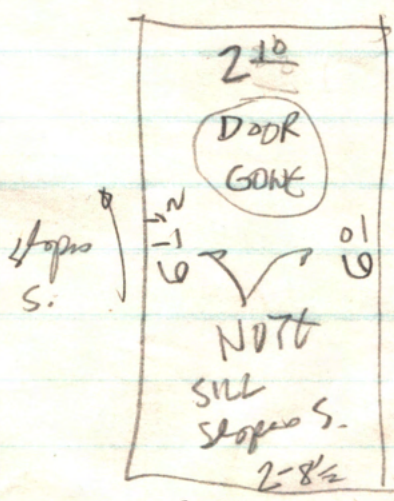 2 10
DOOR
GONE
slopes
S.
NOTE
SILL
slopes S.
2-8½